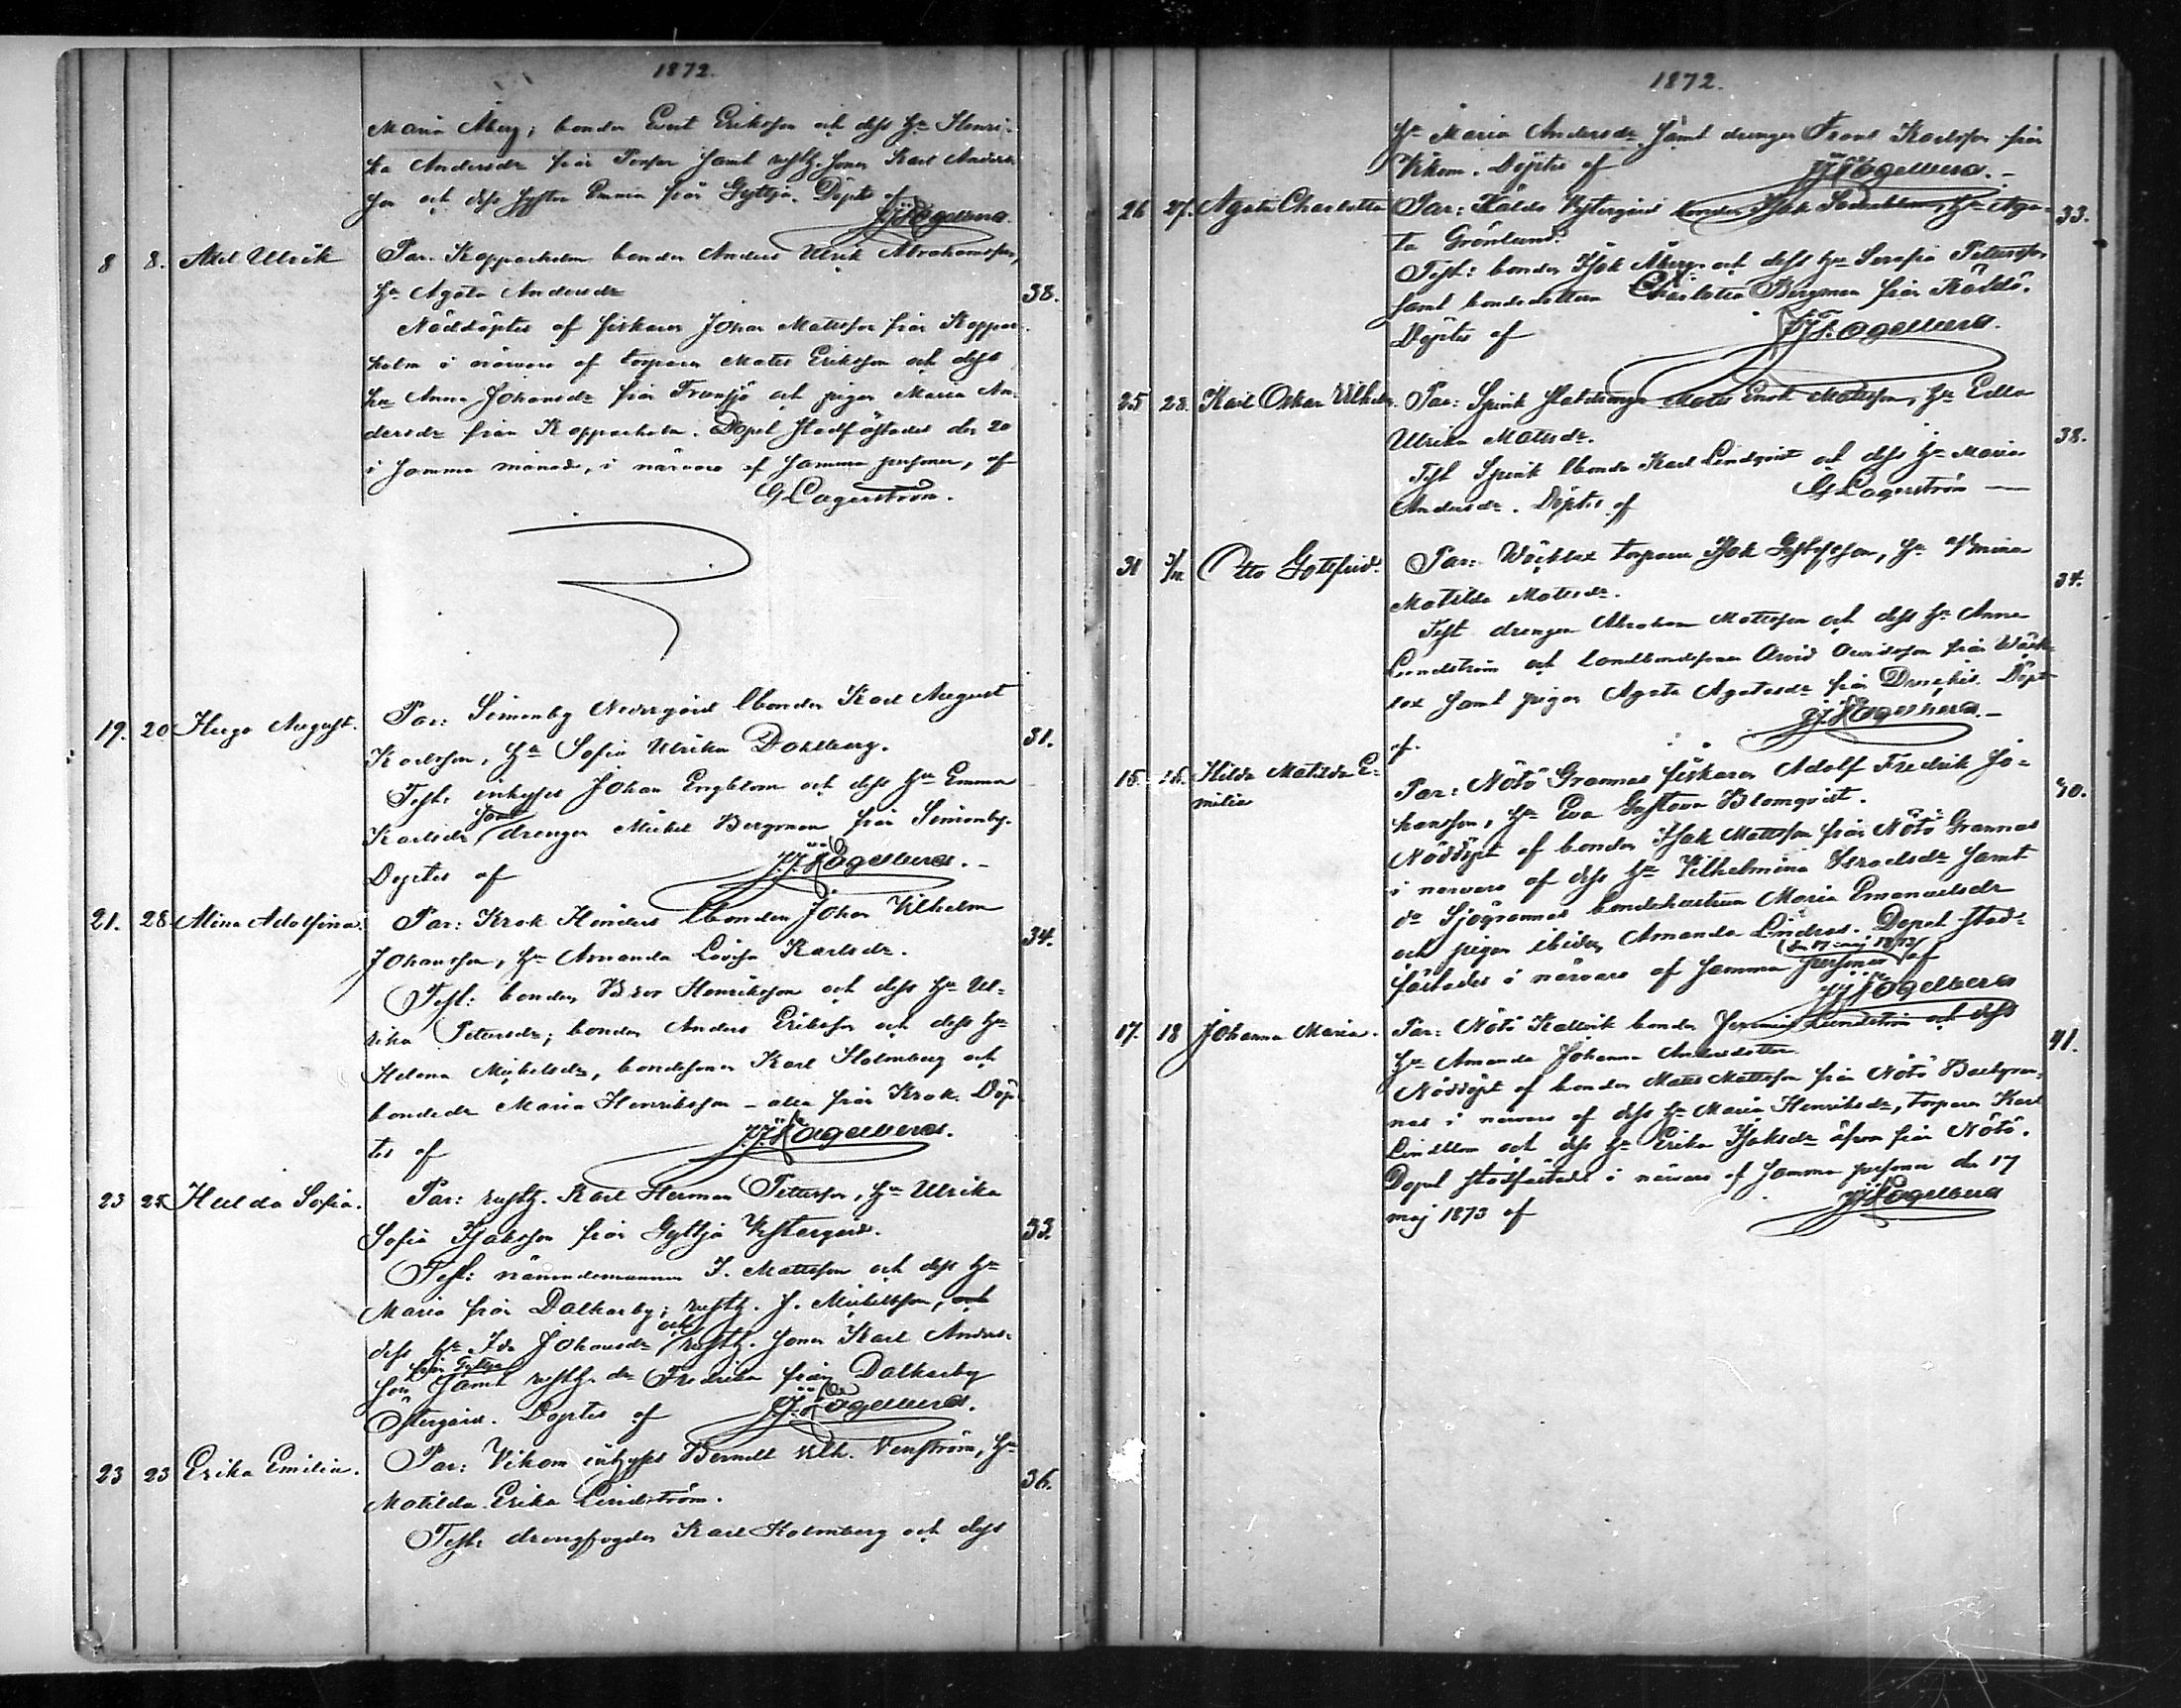 1872.
Maria Åberg; bonden Evert Eriksson och dess h:u Henri-
ka Andersdr från samt rusth. sonen Karl Anders-
son och dess syster Emma från Gyttja. Döpte af
8 8. Axel Ulrik Par. Kopparholm bonden Anders Ulrik Abrahamsson,
h:u Agata Andersdr 38.
Nöddöptes af fiskaren Johan Matsson från Koppar-
holm i närvaro af torparen Mats Eriksson och dess
hu Anna Johansdr från och pigan Maria An-
dersdr från Kopparholm. Dopet stadfästades den 20
i samma månad, i närvaro af samma personer, af
G Lagerström.
19. 20 Hugo August. Par: Simonby Nedergård lbonden Karl August
Karlsson, h:u Sofia Ulrika Dahlberg. 31.
Test: inhyses Johan Engblom och dess h:u Emma
Karlsdr samt drengen Mickel Bergman från Simonby.
Döptes af
21. 28 Alina Adolfina. Par: Krok Hinders lbonden Johan Vilhelm
Johansson, h:u Amanda Lovisa Karlsdr. 34.
Test: bonden Henriksson och dess h:u Ul-
rika Petersdr; bonden Anders Eriksson och dess h:u
Helena Mickelsdr, bondesonen Karl Holmberg och
bondedr Maria Henriksson – alla från Krok. Döp-
tes af
23 25 Hulda Sofia. Par: rusth. Karl Herman Pettersson, h:u Ulrika
Sofia Isaksson från Gyttja Vestergård. 33.
Test: nämndemannen I. Mattsson och dess h:u
Maria från Dalkarby; rusth. J. Mickelsson, och
dess h:u Ida Johansdr och rusth. sonen Karl Anders-
son från Gyttja samt rusth. dr Fredrika från Dalkarby
Östergård. Döptes af
23 23 Erika Emilia. Par: Vikom inhyses Berndt Vilh. Venström, h:u
Matilda Erika Lindström. 36.
Test: drengfogden Karl Holmberg och dess
1872.
h:u Maria Andersdr samt drengen Frans Karlsson från
Vikom. Döptes af
26 27. Agata Charlotta Par: Käldö Vestergård bonden Isak Söderblom, h:u Aga-
ta Grönlund. 33.
Test: bonden Isak Åberg och dess h:u Serafia Pettersson
samt bondedottern Charlotta Bergman från Käldö.
Döptes af
25 28. Karl Oskar Vilhelm. Par: Spink statdrengen Mats Enok Mattsson, h:u Edla
Ulrika Matsdr. 38.
Test Spink lbonde Karl Lindqvist och dess h:u Maria
Andersdr. Döptes af G Lagerström
31 Otto Gottfrid. Par: torparen Isak Gustafsson, h:u
Matilda Matsdr. 34.
Test drengen Abraham Mattsson och dess h:u Anna
Lundström och landbondesonen Arvid Arvidsson från
samt pigan Agata Agatasdr från Döpt
af.
15. 16. Hilda Matilda E-
milia Par: Nötö Grannas fiskaren Adolf Fredrik Jo-
hansson, h:u Eva Gustava Blomqvist. 40.
Nöddöpt af bonden Isak Mattsson från Nötö Grannas
i närvaro af dess h:u Vilhelmina Israelsdr samt
do Sjögrannas bondehustrun Maria Emanuelsdr
och pigan ibidem Amanda Lindros. Dopet stad-
fästades i närvaro af samma personer (den 17 maj 1873) af
17. 18 Johanna Maria. Par: Nötö Kallvik bonden Jeremias Lundström och dess
h:u Amanda Johanna Andersdotter. 41.
Nöddöpt af bonden Mats Mattsson från Nötö Backgran-
nas i närvaro af dess h:u Maria Henriksdr, torparen Karl
Lindblom och dess h:u Erika Isaksdr äfven från Nötö.
Dopet stadfästades i närvaro af samma personer den 17
maj 1873 af